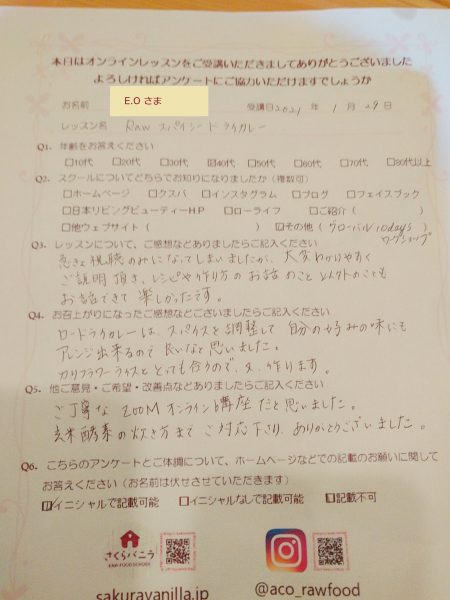 本日はオンラインレッスンをご受講いただきましてありがとうございました
よろしければアンケートにご協力いただけますでしょうか
お名前 E.O さま 受講日 2021 年 1 月 29 日
レッスン名 Raw スパイシードライカレー
Q1. 年齢をお答えください
□10代 □20代 □30代 ☑40代 □50代 □60代 □70代 □80代以上
Q2. スクールについてどちらでお知りになりましたか(複数可)
□ホームページ □クスパ □インスタグラム □ブログ □フェイスブック
□日本リビングビューティーHP □ローライフ □ご紹介( )
□他ウェブサイト( ) ☑その他(グローバル10days
ワークショップ
Q3. レッスンについて、ご感想などありましたらご記入ください
急きょ視聴のみになってしまいましたが、大変わかりやすく
ご説明頂き、レシピや作り方のお話のこと以外のことも
お話できて楽しかったです。
Q4. お召上がりになったご感想などございましたらご記入ください
ロードライカレーは、スパイスを調整して自分の好みの味にも
アレンジ出来るので良いなと思いました。
カリフラワーライスととっても合うので、又、作ります。
Q5. 他ご意見・ご希望・改善点などありましたらご記入ください
ご丁寧なZOOMオンライン講座だと思いました。
玄米酵素の炊き方までご対応下さり、ありがとうございました。
Q6. こちらのアンケートとご体調について、ホームページなどでの記載のお願いに関して
お答えください(お名前は伏せさせていただきます)
☑イニシャルで記載可能 □イニシャルなしで記載可能 □記載不可
さくらばにら
RAW FOOD SCHOOL
sakuravanilla.jp
@aco_rawfood